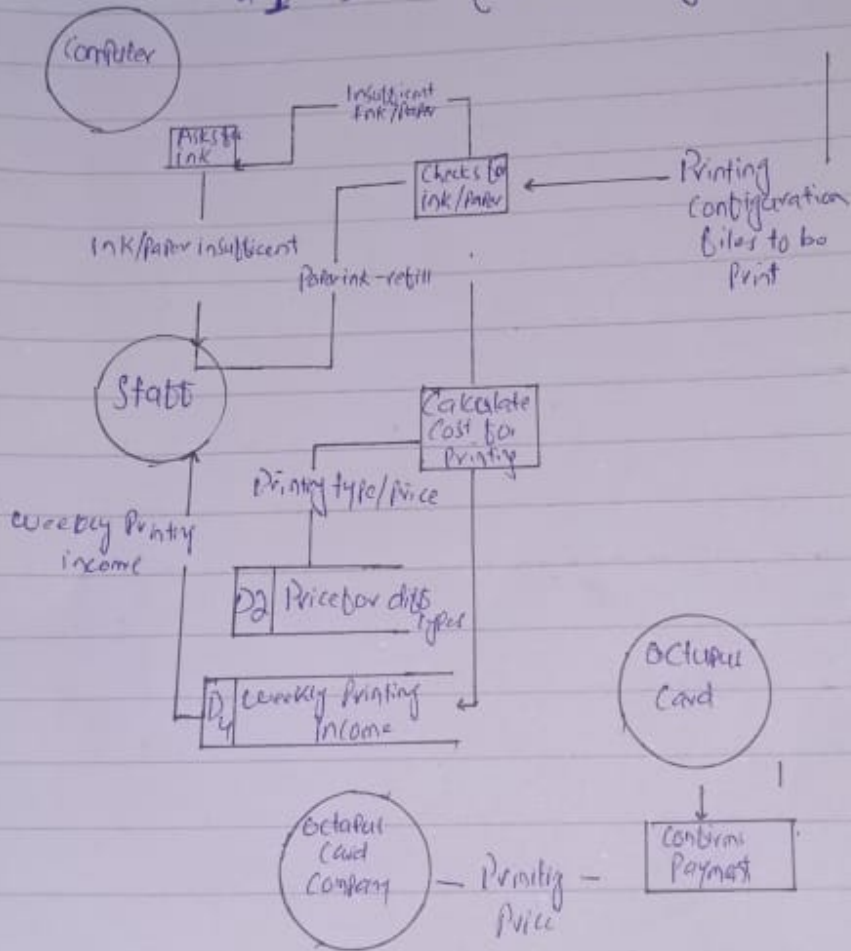 Computer
Insufficient
Ink/Paper
Asks for
ink
Checks for
ink/Paper
Printing
Configuration
files to be
Print
Ink/Paper insufficent
Paper ink-refill
Staff
Calculate
Cost for
Printing
Printing type/Price
Weekly Printing
income
D2
Price for diff
types
D4
Weekly Printing
Income
Octupus
Card
Octapus
Card
Company
Printing
Price
Confirms
Payment